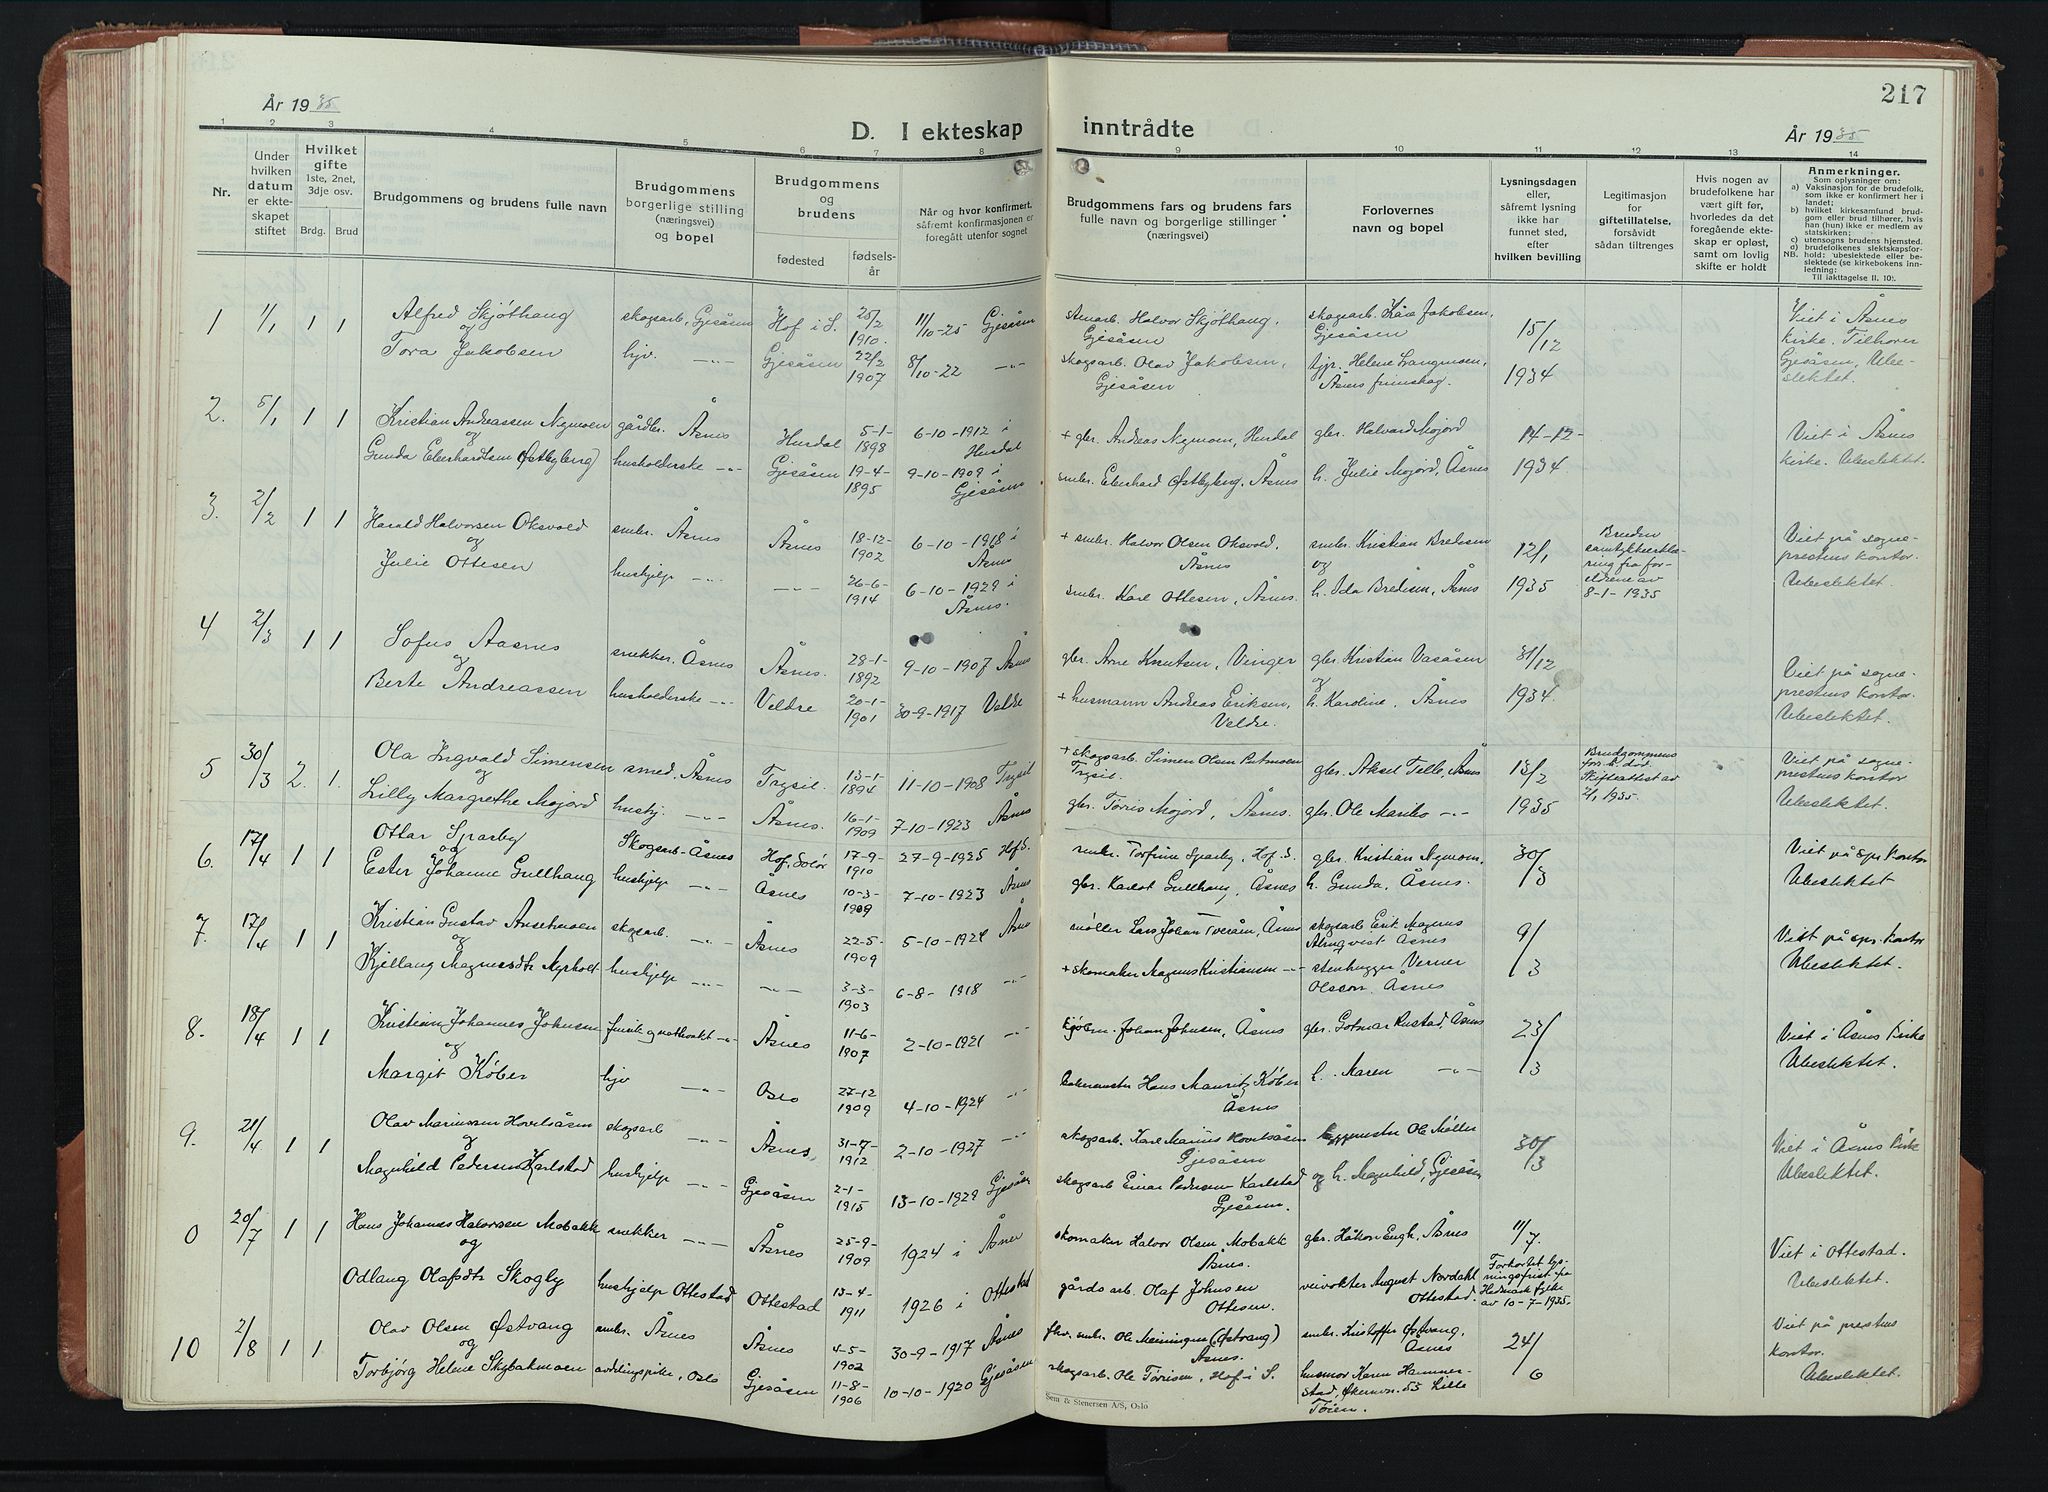 217
År 1935
D. I ekteskap inntrådte
År 1935
1 2 3 4 5 6 7 8 9 10 11 12 13 14
Nr.
Under hvilken datum er ekteskapet stiftet
Hvilket gifte 1ste, 2net, 3dje osv.
Brdg. Brud
Brudgommens og brudens fulle navn
Brudgommens borgerlige stilling (næringsvei) og bopel
Brudgommens og brudens
fødested
fødselsår
Når og hvor konfirmert, såfremt konfirmasjonen er foregått utenfor sognet
Brudgommens fars og brudens fars fulle navn og borgerlige stillinger (næringsvei)
Forlovernes navn og bopel
Lysningsdagen eller, såfremt lysning ikke har funnet sted, efter hvilken bevilling
Legitimasjon for giftetillatelse, forsåvidt sådan tiltrenges
Hvis nogen av brudefolkene har vært gift før, hvorledes da det foregående ekteskap er opløst, samt om lovlig skifte er holdt
Anmerkninger.
Som oplysninger om:
a) Vaksinasjon for de brudefolk, som ikke er konfirmert her i landet;
b) hvilket kirkesamfund brudgom eller brud tilhører, hvis han (hun) ikke er medlem av statskirken;
c) utensogns brudens hjemsted.
d) brudefolkenes slektskapsforhold: ubeslektede eller beslektede (se kirkebokens innledning:
NB.
Til iakttagelse II, 10).
1 1/1 1 1 Alfred Skjöthaug skogsarb, Gjesåsen Hof i S. 25/2 1910. 11/10-25 Gjesåsen Halvor Skjöthaug, Gjesåsen skogsarb. Kåre Jakobsen, Gjesåsen 15/12 Viet i Åsnes
og
Tora Jakobsen hjv. -"- Gjesåsen 22/2 1907 8/10-22 -"- skogsarb. Olav Jakobsen, Gjesåsen Helene Langmoen, Åsnes finnskog. 1934 kirke. Tilhører Gjesåsen, Ubeslektet.
2. 5/1 1 1 Kristian Andreassen Nymoen gårdbr. Åsnes Hurdal 5-1-1898 6-10-1912 i Hurdal + gbr. Andreas Nymoen, Hurdal gbr. Halvard Mojord 14-12- Viet i Åsnes
og
Gunda Eberhardtsen (Østbyberg) husholderske -"- Gjesåsen 19-4-1895 9-10-1909 i Gjesåsen smbr. Eberhard Østbyberg, Åsnes h. Julie Mojord, Åsnes 1934. kirke. Ubeslektet.
3. 2/2 1 1 Harald Halvorsen Oksvold smbr. Åsnes Åsnes 18-12-1902 6-10-1918 i Åsnes + smbr. Halvor Olsen Oksvold, Åsnes smbr. Kristian Bredesen og 12/1 Bruden samtykkeerklæring fra foreldrene av 8-1-1935 Viet på sogne-
og
Julie Ottesen hushjelp -"- -"- 26-6-1914 6-10-1929 i Åsnes. smbr. Karl Ottesen, Åsnes. h. Ida Bredesen, Åsnes 1935 prestens kontor. Ubeslektet.
4 2/3 1 1 Sofus Aasnes snekker, Åsnes Åsnes. 28-1-1892 9-10-1907 Åsnes gbr. Arne Knutsen, Vinger gbr Kristian Vasåsen og 31/12 Viet på sogne-
og
Berte Andreassen husholderske -"- Veldre 20-1-1901 30-9-1917 Veldre + husmann Andreas Eriksen, Veldre. h. Karoline, Åsnes 1934. prestens kontor. Ubeslektet.
5 30/3 2. 1. Ola Ingvald Simensen smed, Åsnes Trysil. 13-1-1894 11-10-1908 Trysil + skogsarb. Simen Olsen Trysil. gbr. Aksel Telle, Åsnes 13/2 Brudgommens for. h. død. Skifteattest av 2/1 1935. Viet på sogne-
og
Lilly Margrethe Mojord hushj. -"- Åsnes. 16-1-1909 7-10-1923 Åsnes gbr. Torris Mojord, Åsnes. gbr. Ole -"- 1935 prestens kontor Ubeslektet.
6. 17/4 1 1 Ottar Sparby Skogsarb- Åsnes Hof, Solør 17-9-1910 27-9-1925 Hof S. smbr. Torfinn Sparby, Hof S. gbr. Kristian Nymoen, 30/3 Viet på spr. kontor
og
Ester Johanne Gullhaug hushjelp -"- Åsnes 10-3-1909 7-10-1923 Åsnes gbr. Karlot Gullhaug, Åsnes h. Gunda, Åsnes. Ubeslektet
7. 17/4 1 1 Kristian Gustav skogsarb. -"- Åsnes 22-5-1909 5-10-1924 Åsnes møller Lars Johan Tveråen, Åsnes skogsarb Erik Magnus Almqvist Åsnes 9/3 Viet på spr. kontor
og
Kjellaug Magnusdtr Myrholt hushjelp -"- -"- 3-3-1903 6-8-1918 -"- + skomaker Magnus Kristiansen -"- stenhugger Verner Olsson. Åsnes Ubeslektet.
8. 18/4 1 1 Kristian Johannes Johnsen nattvakt -"- Åsnes 11-6-1907 2-10-1921 -"- Johan Johnsen, Åsnes gbr. Gotmar Rustad, Åsnes 23/3 Viet i Åsnes kirke
og
Margit Køber hjv -"- Oslo 27-12-1909 4-10-1924 -"- Hans Mauritz Køber Åsnes h. Maren -"- Ubeslektet.
9. 21/4 1 1 Olav Mariussen Hovelsåsen skogsarb -"- Åsnes, 31-7-1912 2-10-1927 -"- skogsarb. Karl Marius Hovelsåsen Gjesåsen Ole Møller 30/3 Viet i Åsnes kirke
og
Magnhild Pedersen Karlstad hushjelp -"- Gjesåsen 2-1-1915 13-10-1929 Gjesåsen skogsarb Einar Pedersen Karlstad Gjesåsen. og h. Magnhild, Gjesåsen Ubeslektet.
0 20/7 1 1 Hans Johannes Halvorsen Mobakk snekker -"- Åsnes 25-9-1909 1924 i Åsnes skomaker Halvor Olsen Mobakk Åsnes. gbr. Håkon Engh, Åsnes 11/7. Viet i Ottestad.
og
Odlaug Olafsdtr Skogly hushjelp Ottestad Ottestad 13-4-1911 1926 i Ottestad gårdsarb. Olaf Johnsen Ottesen. veivokter August Nordahl Ottestad. Forkortet lysningsfrist fra Hedmark fylke av 10-7-1935. Ubeslektet.
10 2/8 1 1 Olav Olsen Østvang smbr. Åsnes Åsnes 4-5-1902 30-9-1917 Åsnes fhv. smbr. Ole Meiningen (Østvang) Åsnes. smbr. Kristoffer Østvang, Åsnes 24/6 Viet på prestens kontor.
og
Torbjørg Helene Skybakmoen avdelingspike, Oslo Gjesåsen 11-8-1906 10-10-1920 Gjesåsen skogsarb. Ole Tørrisen, Hof i S. husmor Karen Hammerstad, Økernvn. 53 Lille Tøien. Ubeslektet.
Sem & Stenersen A/S, Oslo